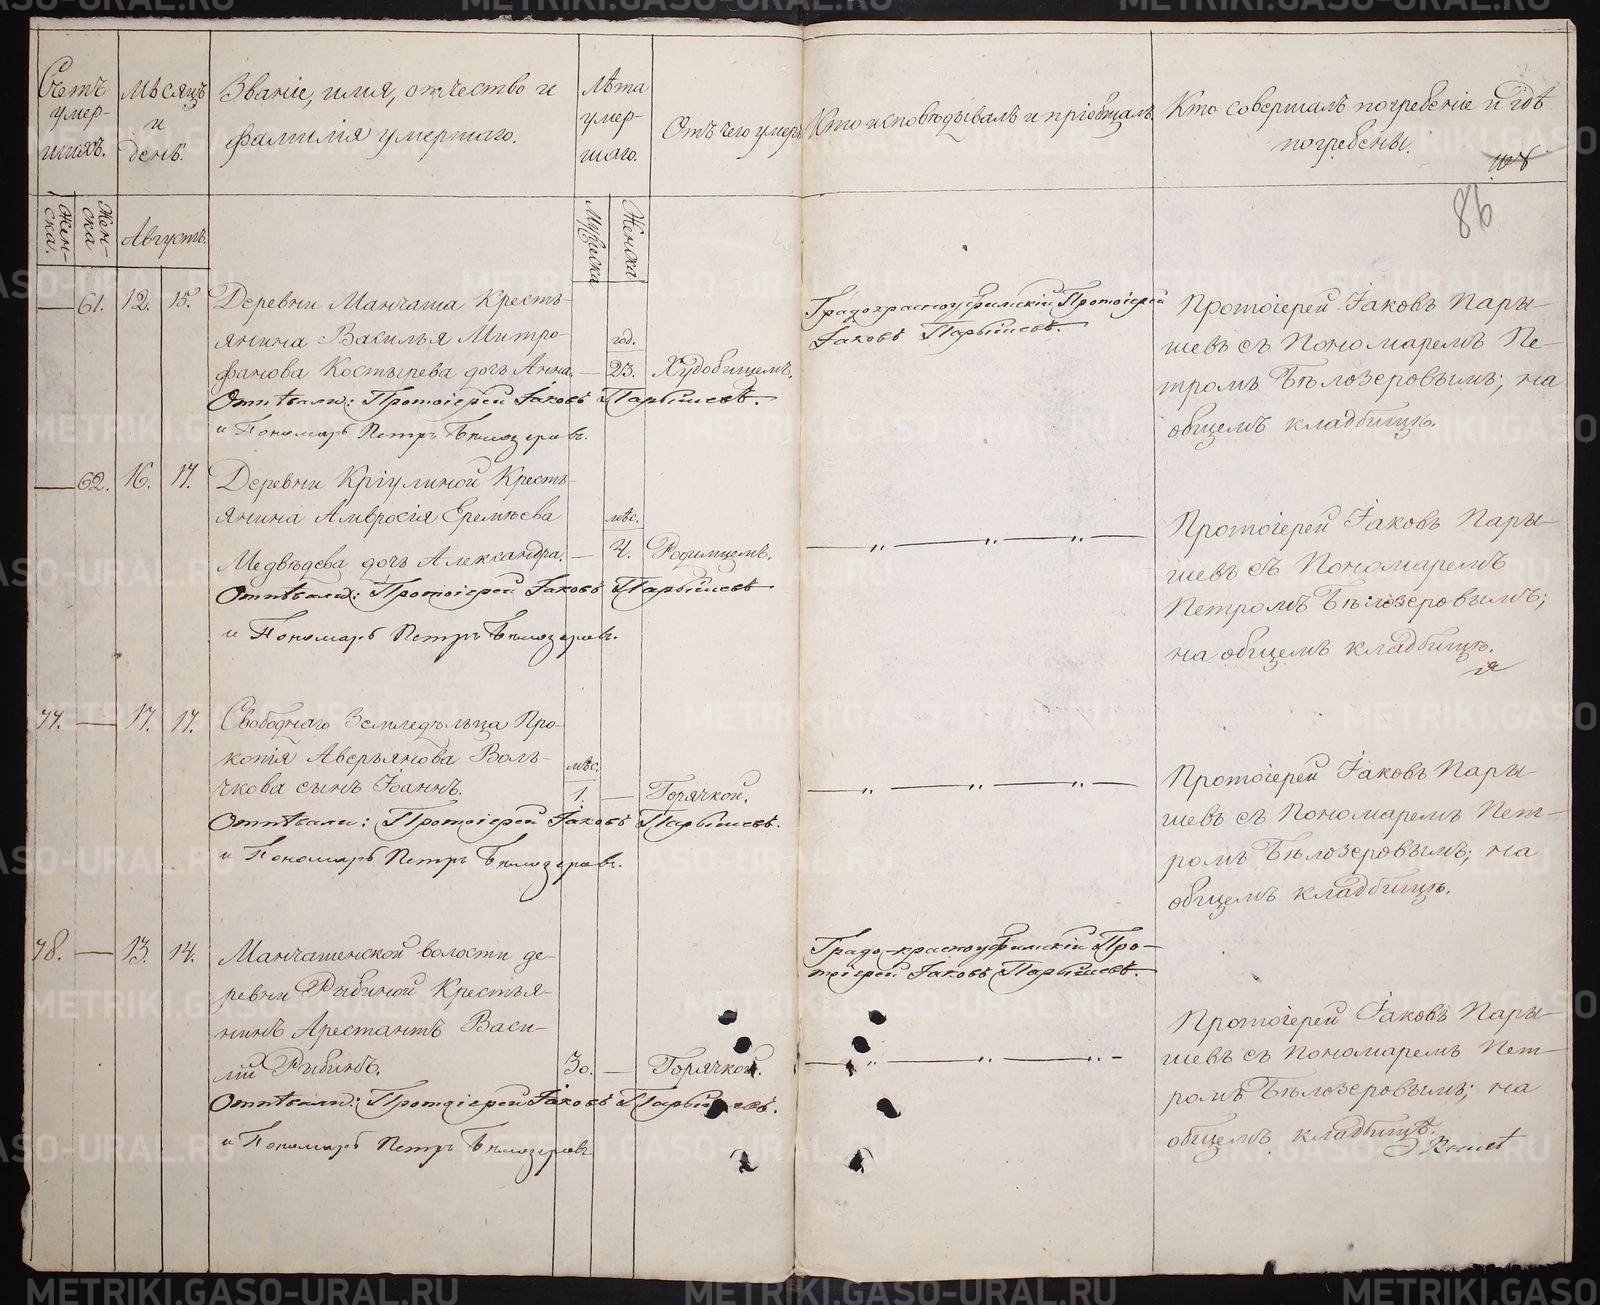 Счетъ умер-шихъ.
Мѣсяцъ и день.
Званіе, имя, отчество и
фамилія умершаго.
Лѣта умер-шаго.
Отъ чего умеръ
Кто исповѣдывалъ и пріобщалъ.
Кто совершалъ погребеніе и гдѣ
погребены.
86
Жен-ска.
Жен-ска
Августъ.
Мужеска
Женска
61. 12. 15.
Деревни Манчаша Кресть-
янина Василья Митро-
фанова Костырева дочь Анна.
год.
23.
Худобищемъ.
Отпѣвали: Протоіерей Іаковъ Парышевъ.
и Пономарь Петръ Бѣлозеровъ.
Градокрасноуфимскій Протоіерей
Іаковъ Парышевъ.
Протоіерей Іаковъ Пары-
шевъ съ Пономаремъ Пе-
тромъ Бѣлозеровымъ; на
общемъ кладбищѣ.
62. 16. 17.
Деревни Кріулиной Кресть-
янина Амвросія Еремѣева
Медвѣдева дочь Александра.
мѣс.
Родимцемъ.
Отпѣвали: Протоіерей Іаковъ Парышевъ
и Пономарь Петръ Бѣлозеровъ.
— „ — „ — „ —
Протоіерей Іаковъ Пары-
шевъ съ Пономаремъ
Петромъ Бѣлозеровымъ;
на общемъ кладбищѣ.
77. — 17. 17.
Свободнаго Земледѣльца Про-
копія Аверьянова Воль-
чкова сынъ Іоаннъ.
мѣс.
1. —
Горячкой.
Отпѣвали: Протоіерей Іаковъ Парышевъ.
и Пономарь Петръ Бѣлозеровъ.
— „ — „ — „ —
Протоіерей Іаковъ Пары-
шевъ съ Пономаремъ Пет-
ромъ Бѣлозеровымъ; на
общемъ кладбищѣ.
78. — 13. 14.
Манчашенской волости де-
ревни Рыбиной Крестья-
нинъ Арестантъ Васи-
лій Рыбинъ.
30. —
Горячкой.
Отпѣвали: Протоіерей Іаковъ Парышевъ.
и Пономарь Петръ Бѣлозеровъ
Градо-красноуфимскій Про-
тоіерей Іаковъ Парышевъ.
— „ — „ — „ —
Протоіерей Іаковъ Пары-
шевъ съ Пономаремъ Пет-
ромъ Бѣлозеровымъ; на
общемъ кладбищѣ.
METRIKI.GASO-URAL.RU